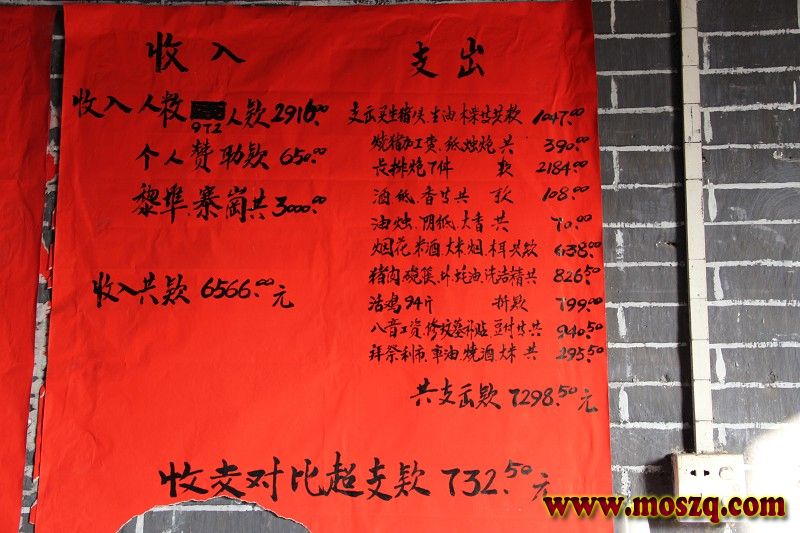 收入
收入人数972人款2916.00
个人赞助款650.00
黎埠.寨岗共3000.00
收入共款6566.00元
支出
支出买生猪 生油 共款1047.00
烧猪加工资.纸烛炮共390.00
长排炮7件 款2184.00
酒.纸.香 共款108.00
油烛.阴纸.大香共70.00
烟花.米酒.大米.烟.木耳共款638.00
猪肉.碗 .蚝油.洗洁精共826.50
活鸡94斤 款799.00
八音工资.修坟墓补贴.豆付 共940.50
拜祭利市. 油.烧酒.大米共295.50
共支出款7298.50元
收支对比超支款732.50元
www.moszq.com